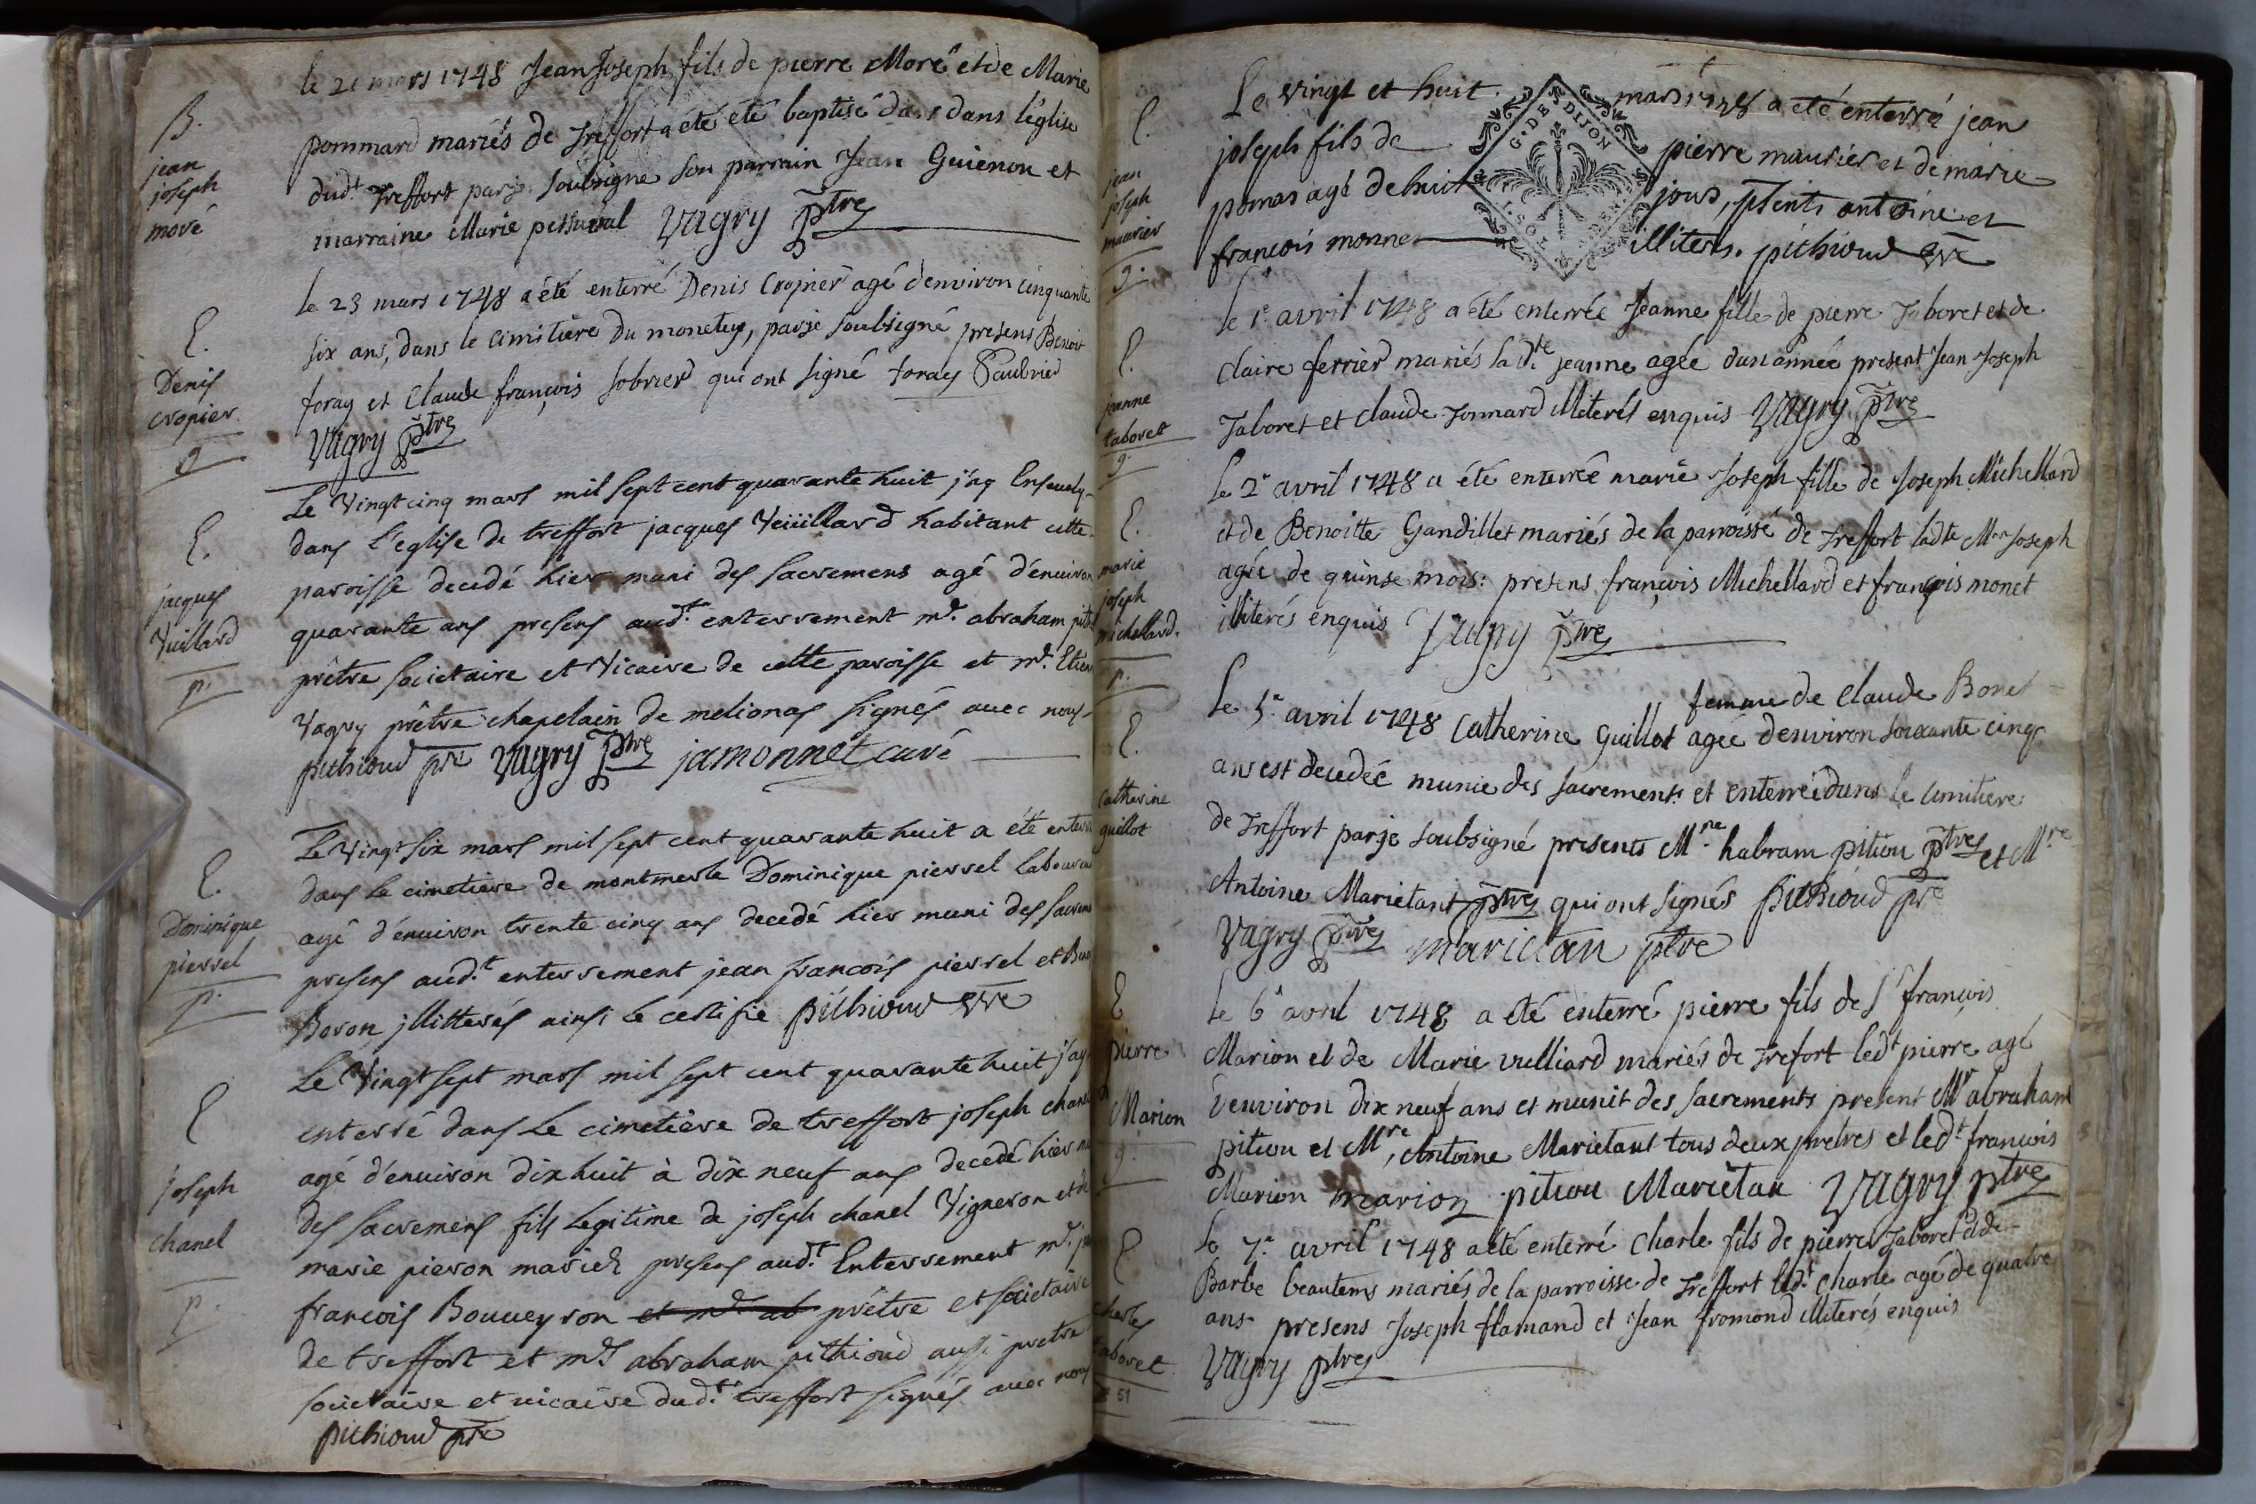 B.
jean
joseph
moré
le 21 mars 1748 Jean Joseph fils de pierre Moré et de Marie
pommard mariés de Treffort a été été baptisé dans dans l'église
dud.t Treffort par je soubsigne son parrain Jean Guienon et
marraine Marie Vagry ptre
E.
Denis
cropier
g
le 23 mars 1748 a été enterré Denis Cropier agé d'environ cinquante
six ans, dans le cimitiere du monetey, par je soubsigné presens Benoit
foray et Claude françois sobrier qui ont signé foray Saubrier
Vagry ptre
E.
jacques
Vuillard
p.
Le Vingt cinq mars mil sept cent quarante huit j'ay Ensevely
dans l'eglise de treffort jacques Veuillard habitant cette
paroisse decedé hier muni des sacremens agé d'environ
quarante ans presens aud.t enterrement mr. abraham
prêtre societaire et Vicaire de cette paroisse et mr. Etien
Vagry prêtre chapelain de melionas signés avec nous
pithioud pre Vagry ptre jamonnet curé
E.
Dominique
pierrel
p.
Le Vingt six mars mil sept cent quarante huit a été enterré
dans le cimetiere de montmerle Dominique pierrel laboureu
agé d'environ trente cinq ans decedé hier muni des sacrem
presens aud.t enterrement jean francois pierrel et
Boron jllitterés ainsi le certifie pithioud pre
E
joseph
chanel
p.
Le Vingt sept mars mil sept cent quarante huit j'ay
enterré dans le cimetière de treffort joseph chanel
agé d'environ dix huit à dix neuf ans decedé hier mu
des sacremens fils legitime de joseph chanel Vigneron et de
marie pieron mariez presens aud.t Enterrement mr. j
francois Bouueyron et mr ab prêtre et societaire
de treffort et mr abraham pithioud aussi pretre
societaire et vicaire dud.t treffort signés avec nous
pithioud pre
E.
jean
joseph
maurier
g.
Le vingt et huit mars 1748 a eté enterré jean
joseph fils de pierre maurier et de marie
pomar agé de huit jours, psents antoine et
francois monnet illiters. pithioud pre
G. DE DIJON
E.
jeanne
taboret
g.
le 1e. avril 1748 a été enterrée Jeanne fille de pierre Taboret et de
Claire ferrier mariés la dte. jeanne agée d'un année present Jean Joseph
Taboret et claude Tonnard illiterés enquis Vagry ptre
E.
marie
joseph
michellard.
p.
le 2e avril 1748 a été enterrée marie Joseph fille de Joseph Michellard
et de Benoitte Gandillet mariés de la parroisse de Treffort ladte Mie Joseph
agée de quinse mois: presens françois Michellard et françois monet
illiterés enquis Vagry ptre
E.
Catherine
guillot
femme de Claude Bonet
Le 5e. avril 1748 Catherine Guillot agée d'environ soixante cinq
ans est decedée munie des sacrements et enterrée dans le cimitiere
de Treffort par je soubsigné presents Mre habram pitiou ptre et Mre
Antoine Marietant ptre qui ont signés pithioud pre
Vagry ptre marietan ptre
E
pierre
Marion
g.
le 6e avril 1748 a eté enterré pierre fils de Sr françois
Marion et de Marie vulliard mariés de Trefort ledt pierre agé
d'environ dix neuf ans et munit des sacrements present Mr abraham
pitiou et Mre, Antoine Marietant tous deux pretres et ledt francois
Marion marion pitiou Marietan Vagry ptre
E.
charles
taboret
51
le 7e. avril 1748 a été enterré Charle fils de pierre Taboret et de
Barbe beautems mariés de la parroisse de Treffort led.t Charle agé de quatre
ans presens Joseph flamand et Jean fromond illiterés enquis
Vagry ptre